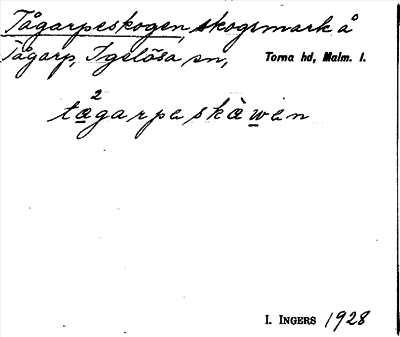 Tågarpeskogen, skogsmark å
Tågarp, Igelösa sn, Torna hd, Malm. l.
2
tągarpeskàwen
I. INGERS 1928